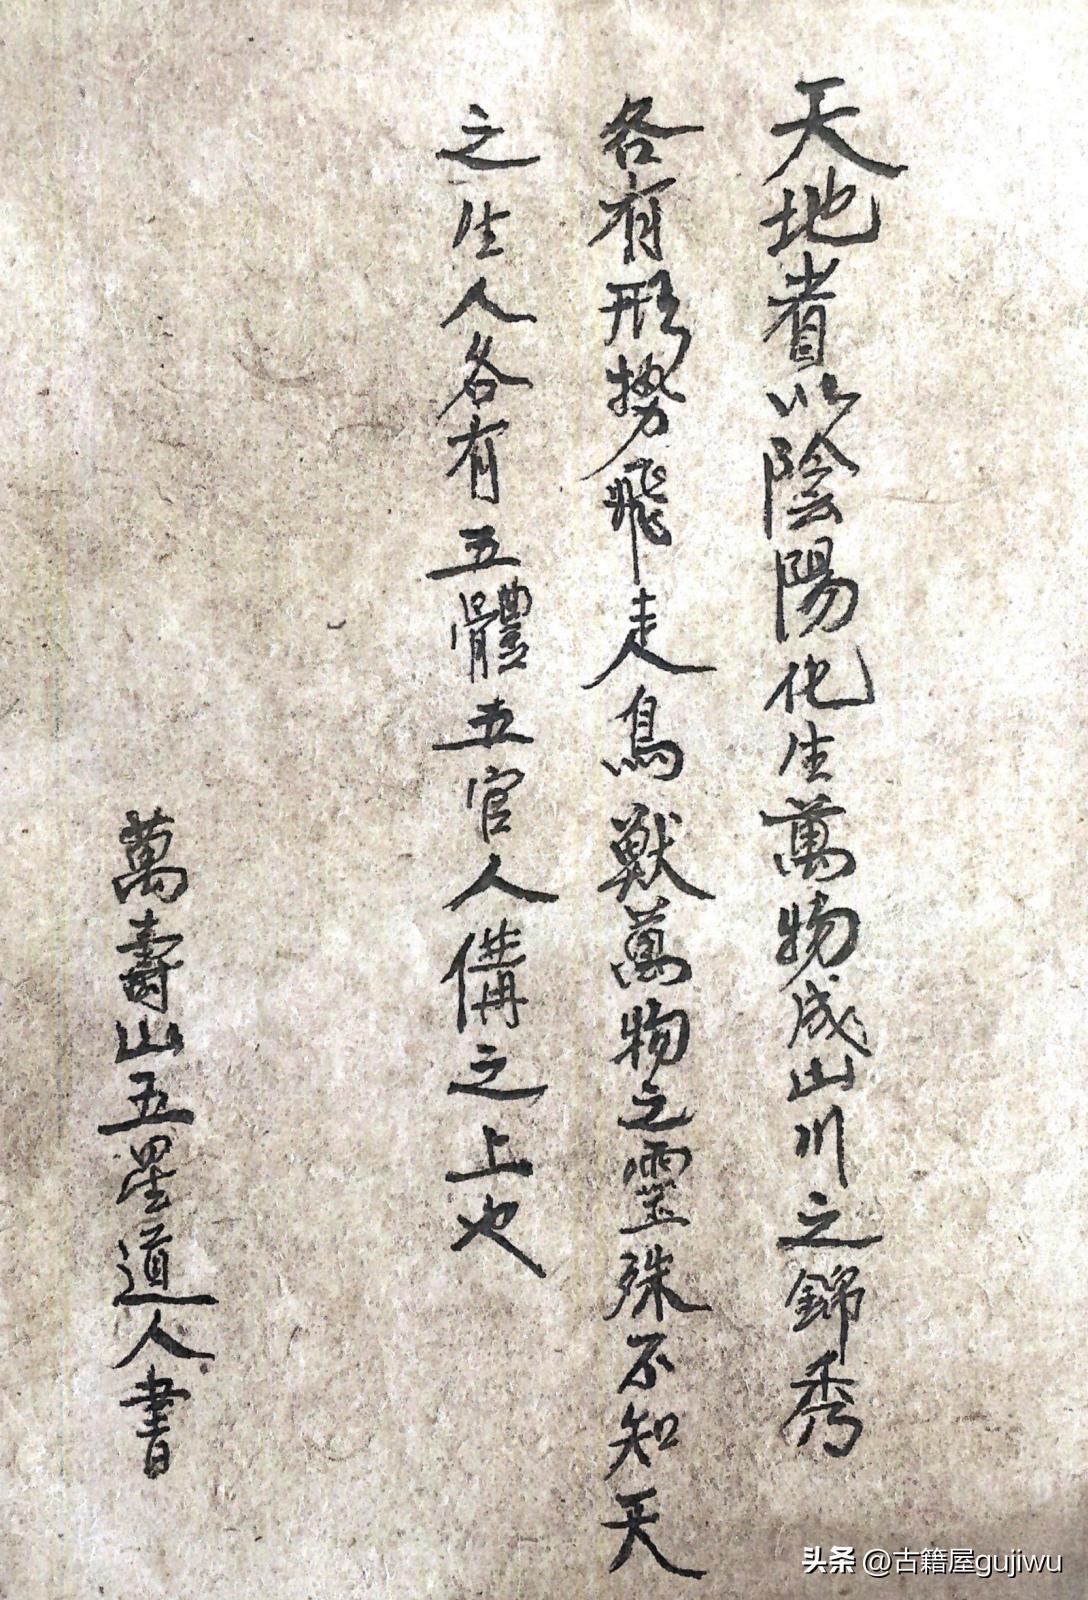 天地者以陰陽化生萬物成山川之錦秀
各有形勢飛走鳥獸萬物之靈殊不知天
之生人各有五體五官人備之上也
萬壽山五星道人書
头条 @古籍屋gujiwu